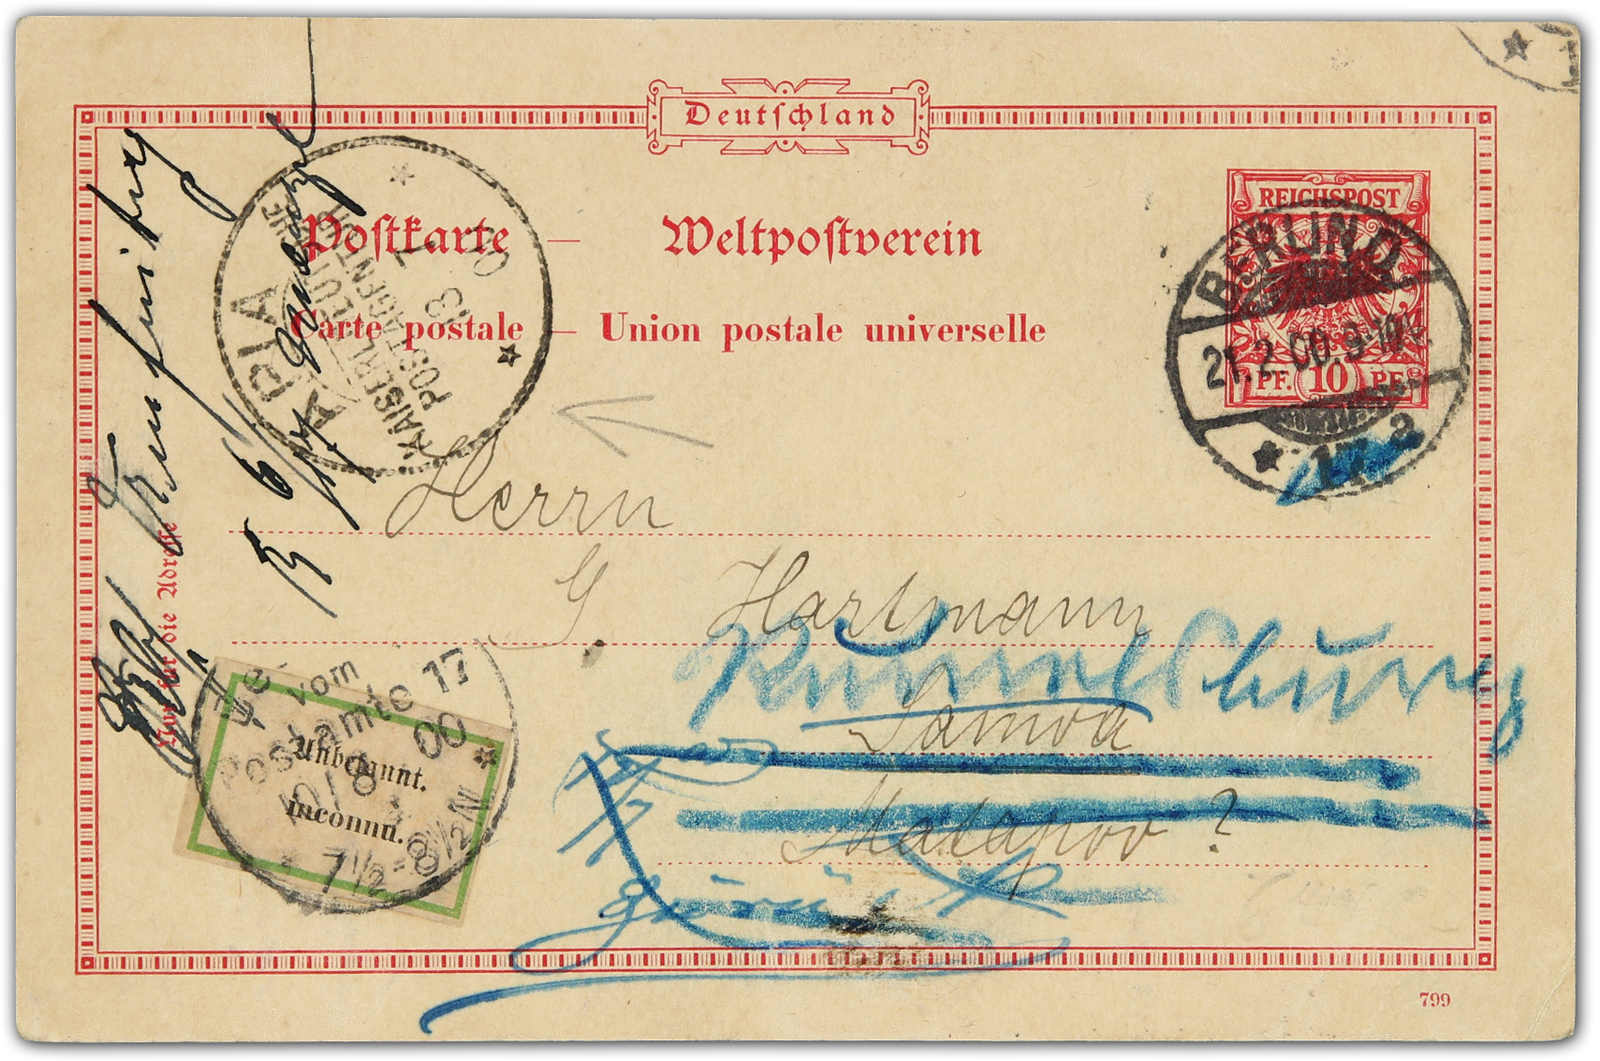 Deutschland
REICHSPOST
PF. 10 PF.
BERLIN O.
21.2.00.9-10V.
* 17 a
Postkarte — Weltpostverein
Carte postale — Union postale universelle
APIA
KAISERL. DEUTSCHE
POSTAGENTUR
13 7
00
Herrn
G. Hartmann
Rummelsburg
Samoa
Matapoo ?
zurück
Nur für die Adresse
vom
Postamte 17
10/8 00
7½-8½N
Unbekannt.
inconnu.
799